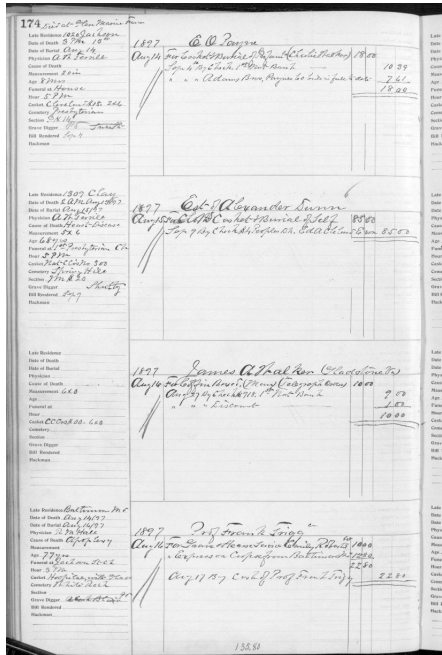 174
Died at Glen Marine Farm
Late Residence 1020 Jackson
Date of Death
Date of Burial Aug 14
Physician A W Terrell
Cause of Death
Measurement 20 in
Age 8 Mos
Funeral at House
Hour 5 P M
Casket
Cemetery Presbyterian
Section
Grave Digger Smith
Bill Rendered Sep 4
Hackman
1897 E O Payne
Aug 14 For Casket & Burial of Infant 18 00
Sep 4 By Check 1st Nat Bank 10 39
" " " Adams Bros, Paynes Co 7 61
18 00
Late Residence 1309 Clay
Date of Death 2 A M Aug 14/97
Date of Burial Aug 15/97
Physician A W Terrell
Cause of Death Heart Disease
Measurement 5x6
Age 68 yrs
Funeral at 1st Presbyterian Ch
Hour 5 P M
Casket 300
Cemetery Spring Hill
Section
Grave Digger
Bill Rendered Sep 9
Hackman
1897 Est of Alexander Dunn
Aug 15 For Casket & Burial of Self 85 00
Sep 9 By Check 85 00
Late Residence
Date of Death
Date of Burial
Physician
Cause of Death
Measurement 6x0
Age
Funeral at
Hour
Casket 6x0
Cemetery
Section
Grave Digger
Bill Rendered
Hackman
1897 James A Walker Gladstone Va
Aug 16 For Coffin Boxed 10 00
Aug 27 By Check 1st Nat Bank 9 00
" " " Discount 1 00
10 00
Late Residence Baltimore Md
Date of Death Aug 14/97
Date of Burial Aug 16/97
Physician
Cause of Death Apoplexy
Measurement
Age 77 yrs
Funeral at
Hour 3 P M
Casket
Cemetery White Rock
Section
Grave Digger
Bill Rendered
Hackman
1897 Prof Frank Trigg
Aug 16 For Grave & Hearse Emily Roberts 10 00
" Express on Corpse from Baltimore 12 80
22 80
Aug 17 By Cash of Prof Frank Trigg 22 80
135.80